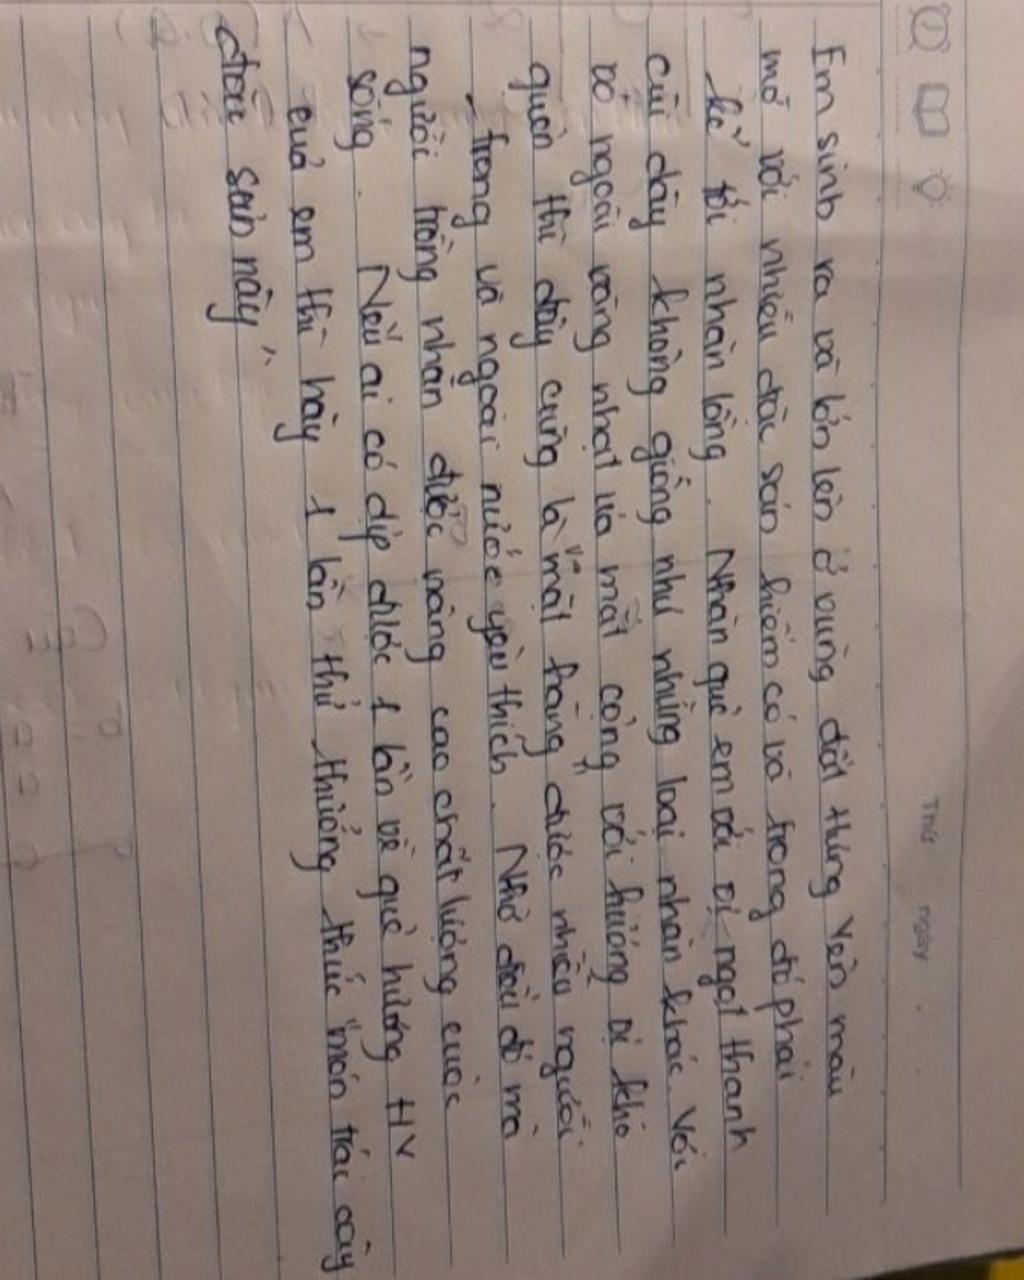 Thứ ngày
Em sinh ra và lớn lên ở vùng đất Hưng Yên màu
mỡ với nhiều đặc sản hiếm có và trong đó phải
kể tới nhãn lồng. Nhãn quê em với vị ngọt thanh
cùi dày không giống như những loại nhãn khác. Với
vỏ ngoài vàng nhạt và mắt cộng với hương vị khó
quên thì đây cũng là mặt hàng được nhiều người
trong và ngoài nước yêu thích. Nhờ điều đó mà
người trồng nhãn được nâng cao chất lượng cuộc
sống. Nếu ai có dịp được 1 lần về quê hương HY
cuả em thì hãy 1 lần thử thưởng thức "món trái cây
đặc sản này"